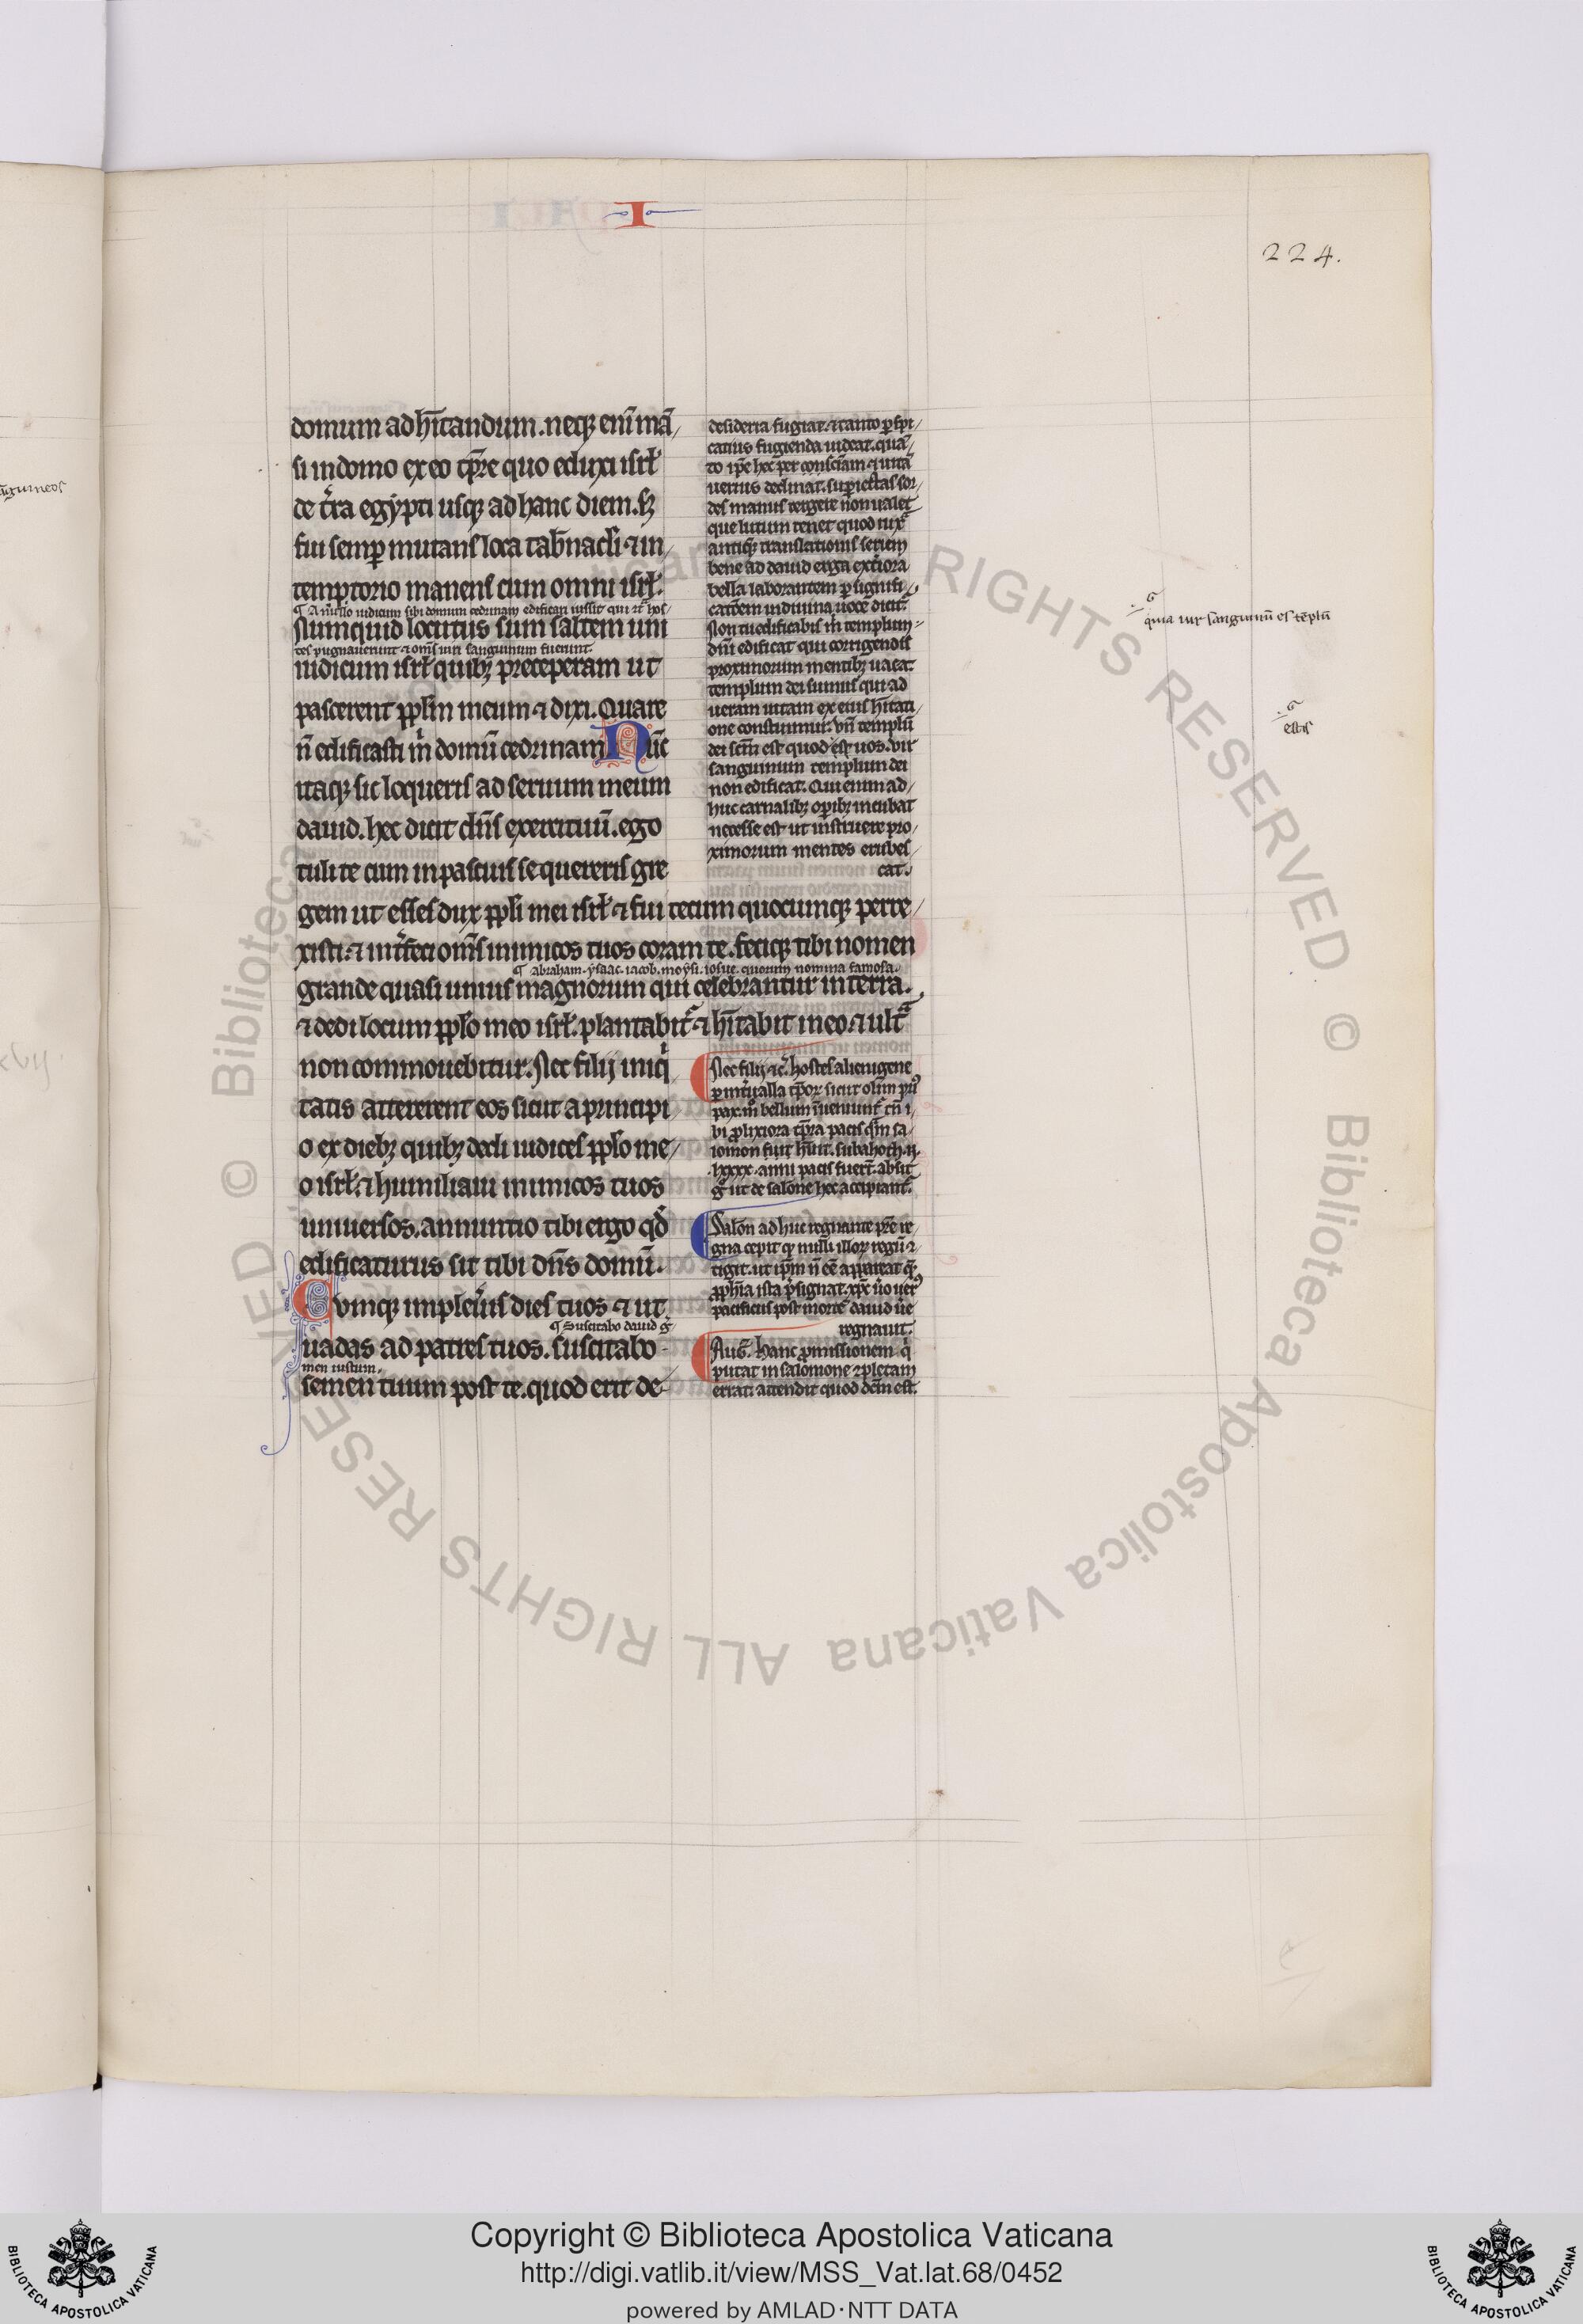 I
224.
domum ad hītandum. neqꝫ eni mā/
si in domo ex eo tp̄re quo eduxi isrł
de t̄ra egypti usqꝫ ad hanc diem. sꝫ
fui semꝑ mutans loca tab̄nacli ⁊ in/
temptorio manens cum omni isrł.
¶ A nullo iudicum sibi domum cedrinam edificari iussit qui
Numquid locutus sum saltem uni
tes pugnauerunt ⁊ om̄s uiri sanguinum fuerunt.
iudicum isrł quibꝫ preceperam ut
pascerent pplm meum ⁊ dixi. Quare
n̄ edificasti m domū cedrinam Nūc
itaqꝫ sic loqueris ad seruum meum
dauid. hec dicit dn̄s exercituū. ego
tuli te cum in pascuis sequereris gre
gem ut esses dux ppli mei isrł ⁊ fui tecum quocumqꝫ perre/
xisti. ⁊ int̄feci om̄s inimicos tuos coram te. fecique tibi nomen
¶ abraham. ysaac. iacob. moysi. iosue. quorum nomina famosa.
grande quasi unius magnorum qui celebrantur in terra.
⁊ dedi locum pplo meo isrł. plantabit̄ ⁊ hītabit in eo. ⁊ ultᵃ
non commouebitur. Nec filij iniqⁱ
tatis atterent eos sicut a principi
o ex diebꝫ quibꝫ dedi iudices pplo me/
o isrł. ⁊ humiliaui inimicos tuos
uniuersos. annuntio tibi ergo qđ
edificaturus sit tibi dn̄s domū.
Cumqꝫ impleuis dies tuos ⁊ ut
¶ Suscitabo dauid g̃
uadas ad patres tuos. suscitabo
men iustum.
semen tuum post te. quod erit de
desideria fugiat. ⁊ tanto ꝑspi/
catius fugienda uideat. quā/
to ip̄e hec per consciam ⁊ uitā
uerius declinat. suꝑiectas sor/
des manus tergere non ualet
que lutum tenet quod iuxᵃ
antiqꝫ translationis seriem
bene ad dauid erga ext̄iora
bella laborantem ꝑ signifi/
catōem in diuina uoce dicit̄
Non tu edificabis m templum
dn̄i edificat qui corrigendis
proximorum mentibꝫ uacat.
templum dei sumus qui ad
ueram uitam ex eius hītati/
one construimur. Vn̄ templū
dei scm̄ est quod est uos. uir
sanguinum templum dei
non edificat. Qui enim ad/
huc carnalibꝫ oꝑibꝫ incubat
necesse est ut instruere pro/
ximorum mentes erubes/
cat.
Nec filij ⁊c̄. hostes alienigene
ꝑ int̄ualla tp̄oꝝ sicut olim
pax bellum inueniunt̄ i/
bi ꝓlixiora tp̄ra pacis qm̄ sa/
lomon fuit hūit. sub ahoth
.lxxx. anni pacis fuert̄. absit
g̃ ut de salōne hec accipiant̄.
Salōn adhuc regnante pr̄e re/
gna cepit qꝫ nulli illoꝝ regū ⁊
tigit. ut ip̄m n̄ eē appareat
ꝓph̄ia ista signat. xpc̄ ū uerꝰ
pacificus post mortē dauid
regnauit.
Aug̃. hanc ꝓmissionem qⁱ
putat in salomone ⁊pletam
errat. attendit quod dcm̄ est.
G
quia uir sanguinū es tēplū
G
estis
Copyright © Biblioteca Apostolica Vaticana
http://digi.vatlib.it/view/MSS_Vat.lat.68/0452
powered by AMLAD·NTT DATA
BIBLIOTECA APOSTOLICA VATICANA
BIBLIOTECA APOSTOLICA VATICANA
© Biblioteca Apostolica Vaticana ALL RIGHTS RESERVED